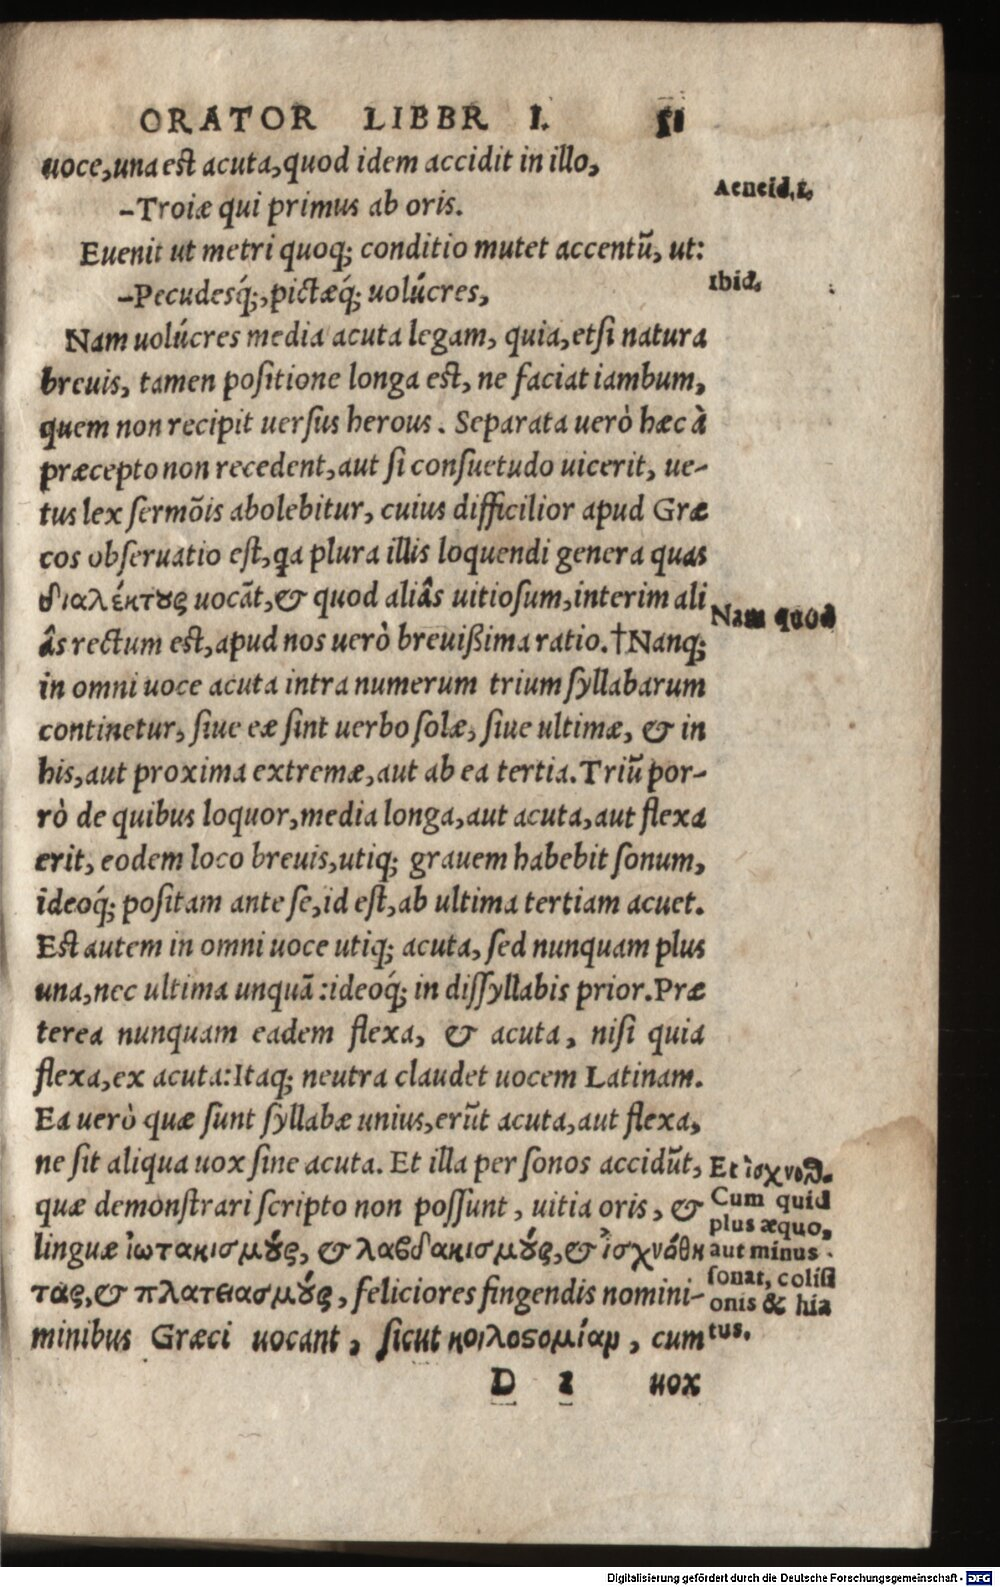 ORATOR LIBBR I. 51
uoce, una est acuta, quod idem accidit in illo,
Aeneid. 1.
-Troiæ qui primus ab oris.
Euenit ut metri quoq; conditio mutet accentũ, ut:
Ibid.
-Pecudesq́;, pictæq́; uolúcres,
Nam uolúcres media acuta legam, quia, etsi natura
breuis, tamen positione longa est, ne faciat iambum,
quem non recipit uersus herous. Separata uerò hæc à
præcepto non recedent, aut si consuetudo uicerit, ue-
tus lex sermõis abolebitur, cuius difficilior apud Græ
cos obseruatio est, qa plura illis loquendi genera quas
διαλέκτους uocãt, & quod aliâs uitiosum, interim ali
Nam quod
âs rectum est, apud nos uerò breuißima ratio. †Nanq;
in omni uoce acuta intra numerum trium syllabarum
continetur, siue eæ sint uerbo solæ, siue ultimæ, & in
his, aut proxima extremæ, aut ab ea tertia. Triũ por-
rò de quibus loquor, media longa, aut acuta, aut flexa
erit, eodem loco breuis, utiq; grauem habebit sonum,
ideoq́; positam ante se, id est, ab ultima tertiam acuet.
Est autem in omni uoce utiq; acuta, sed nunquam plus
una, nec ultima unquã: ideoq́; in dissyllabis prior. Præ
terea nunquam eadem flexa, & acuta, nisi quia
flexa, ex acuta: Itaq; neutra claudet uocem Latinam.
Ea uerò quæ sunt syllabæ unius, erũt acuta, aut flexa,
ne sit aliqua uox sine acuta. Et illa per sonos accidũt,
quæ demonstrari scripto non possunt, uitia oris, &
linguæ ἰωτακισμούς, & λαβδακισμούς, & ἰσχνότη
τας, & πλατειασμούς, feliciores fingendis nomini-
minibus Græci uocant, sicut κοιλοστομίαν, cum
Et ἰσχνοθ.
Cum quid
plus æquo,
aut minus
sonat, colisi
onis & hia
tus.
D 2 uox
Digitalisierung gefördert durch die Deutsche Forschungsgemeinschaft - DFG